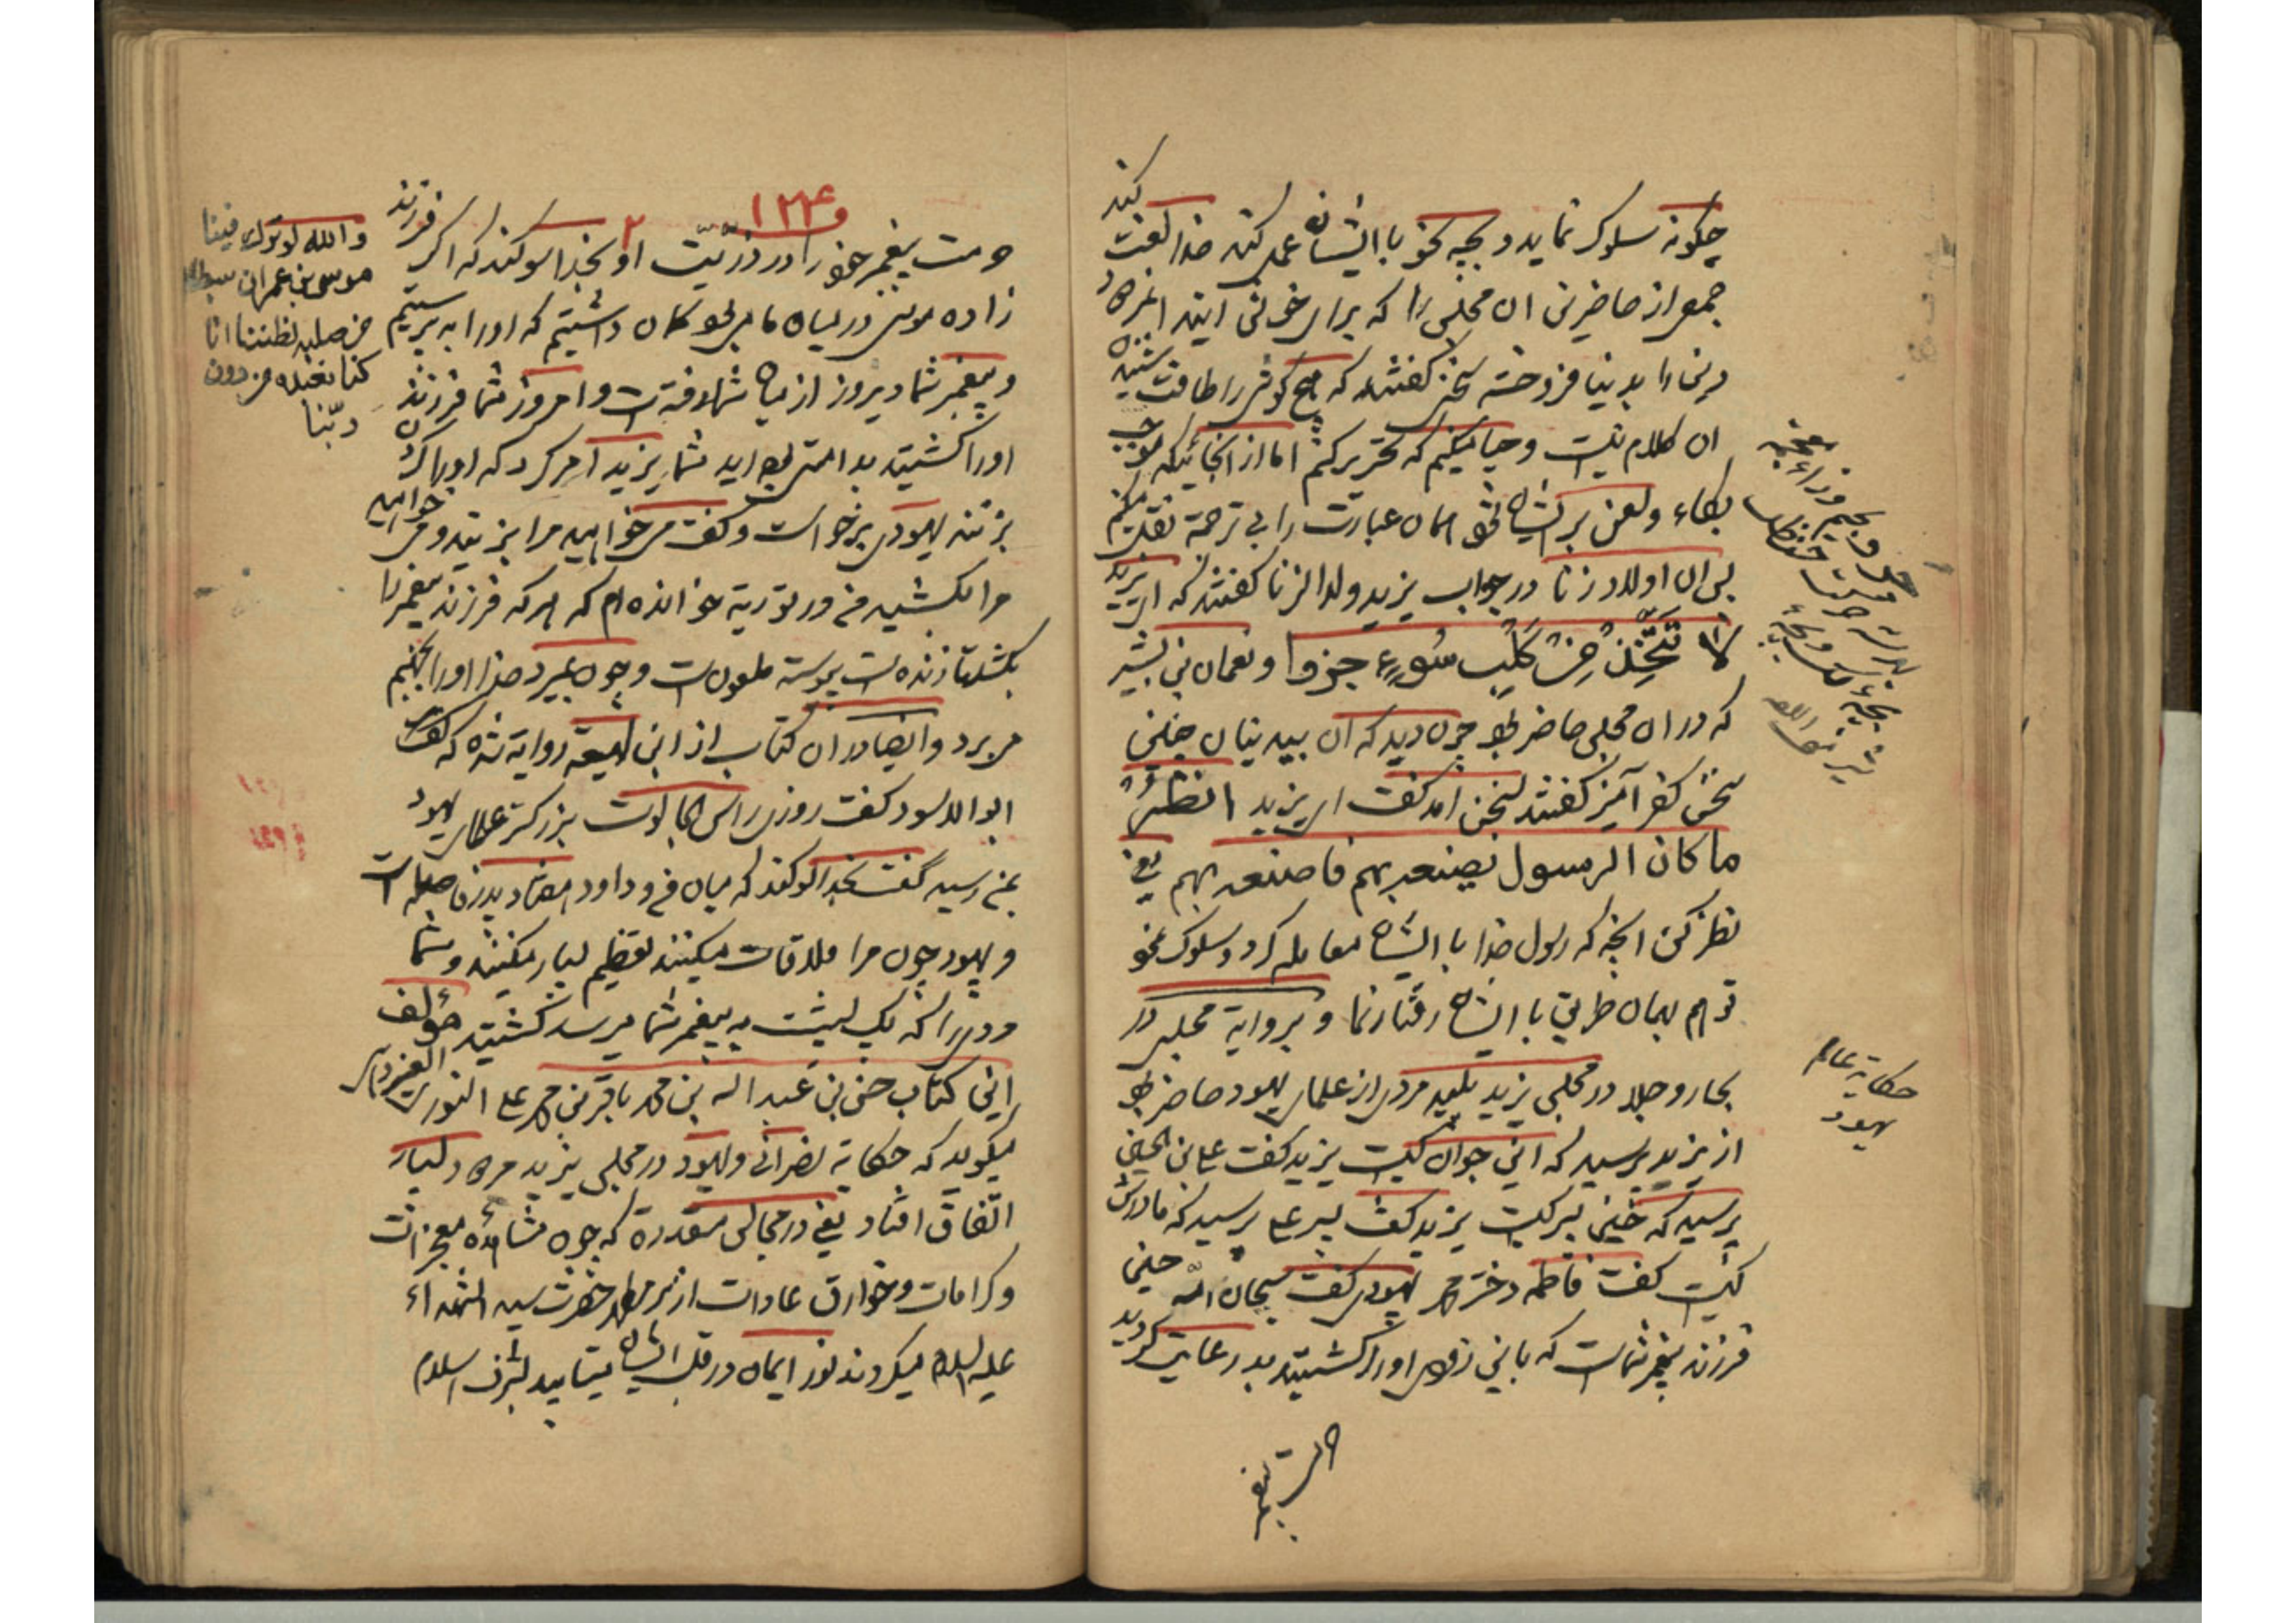 چکونه سلوک نماید و بچه نحو با ایشان عمل کند خدا لعنت کند
جمعی از حاضرین آن مجلس را که برای خوش آیند
دین را بدنیا فروخته سخنی گفتند که هیچ گوش را طاقت شنیدن
آن کلام نیست و حیا میکنم که تحریر کنم اما از آنجائیکه موجب
بکاء و لعن بر ایشان همان عبارت را بی ترجمه نقل میکنم
پس آن اولاد زنا در جواب یزید ولد الزنا گفتند که ای یزید
لا تَتَّخِذْ مِنْ کَلْبِ سُوءٍ جِرْوا و نعمان بن بشیر
که در آن مجلس حاضر بود چون دید که آن بیدینان چنین
سخن کفر آمیز گفتند بسخن آمد گفت ای یزید انظر
ما کان الرسول یصنعه بهم فاصنعه بهم یعنی
نظر کن آنچه که رسول خدا با ایشان معامله کرد و سلوک نمود
تو هم بهمان طریق با ایشان رفتار نما و بروایة مجلسی در
بحار و جلا در مجلس یزید پلید مردی از علمای یهود حاضر بود
از یزید پرسید که این جوان کیست یزید گفت علی بن الحسین
پرسید که حسین پسر کیست یزید گفت پسر علی پرسید که مادرش
کیست گفت فاطمه دختر محمد یهودی گفت سبحان الله حسین
فرزند پیغمبر شماست که باین زودی او را کشتید بد رعایت کردید
حرمت پیغمبر
حکایة عالم
یهود
۱۲۴
حرمت پیغمبر خود را در ذرّیّت او بخدا سوکند که اگر فرزند
زاده موسی در میان ما میبود گمان داشتیم که او را به پرستیم
و پیغمبر شما دیروز از میان شما رفته است و امروز شما فرزند
او را کشتید بد امتی بوده اید شما یزید امر کرد که او را
بزنند یهودی برخواست و گفت میخواهید مرا بزنید و میخواهید
مرا بکشید من در توریة خوانده ام که هر که فرزند پیغمبر را
بکشد تا زنده است پیوسته ملعون است و چون بمیرد خدا او را بجهنم
میبرد و ایضا در آن کتاب از ابن لهیعه روایة شده که گفت
ابوالاسود گفت روزی راس الجالوت بزرگتر علمای یهود
بمن رسید گفت بخدا سوکند که میان من و داود هفتاد پدر فاصله است
و یهود چون مرا ملاقات میکنند تعظیم بسیار میکنند و شما
مردی را که بیک پشت به پیغمبر شما میرسد کشتید مؤلف
این کتاب حسن بن عبد الله بن محمد باقر بن محمد علی النوری
میگوید که حکایة نصرانی و یهود در مجلس یزید مرة و بسیار
اتّفاق افتاد یعنی در مجالس متعدده که چون مشاهده معجزات
و کرامات و خوارق عادات از سر مطهر حضرت سید الشهداء
علیه السلام میکردند نور ایمان در قلب ایشان میتابید بشرف اسلام
والله لو ترک فینا
موسی بن عمران سبطا
من صلبه لظننا انا
کنا نعبده من دون
ربّنا